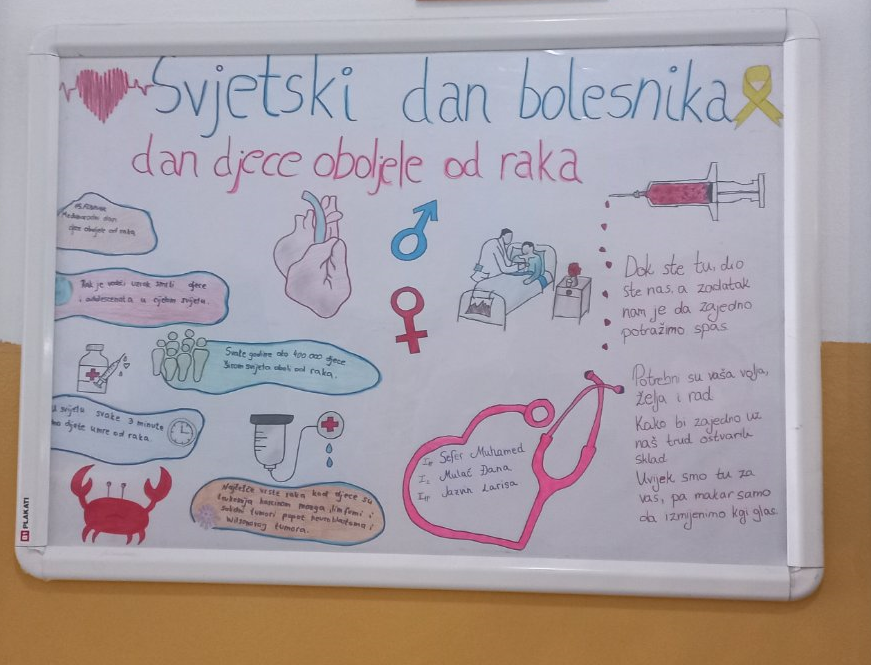 Svjetski dan bolesnika
dan djece oboljele od raka
Međunarodni dan
djece oboljele od raka
Rak je vodeći uzrok smrti djece
i adolescenata u cijelom svijetu.
Svake godine oko 400 000 djece
širom svijeta oboli od raka.
U svijetu svake 3 minute
dijete umre od raka
Najčešće vrste raka kod djece su
leukemija, mozga, limfomi i
solidni tumori poput neuroblastoma i
Wilmsovog tumora.
Sefer Muhamed
Mulać Dana
Jazvan Larisa
Dok ste tu, dio
ste nas, a zadatak
nam je da zajedno
potražimo spas
Potrebni su vaša volja,
želja i rad.
Kako bi zajedno uz
naš trud ostvarili
sklad
Uvijek smo tu za
vas, pa makar samo
da izmijenimo koji glas.
PLAKATI